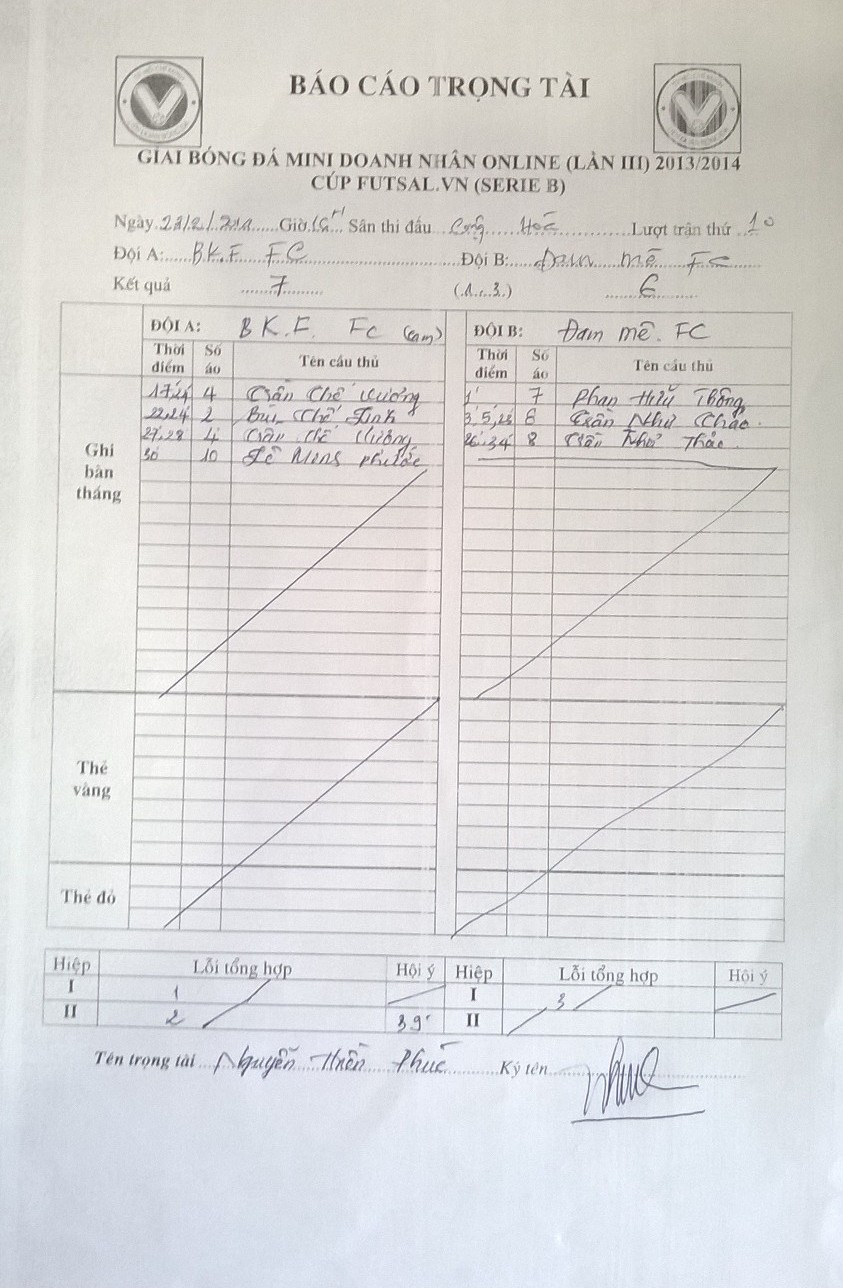 BÁO CÁO TRỌNG TÀI
GIẢI BÓNG ĐÁ MINI DOANH NHÂN ONLINE (LẦN III) 2013/2014
CÚP FUTSAL.VN (SERIE B)
Ngày Giờ Sân thi đấu Cộng Hoà Lượt trận thứ 10
Đội A: B.K.F FC Đội B: Đam mê FC
Kết quả 7 (1 3) 6
ĐỘI A: B K.F. FC (cam) ĐỘI B: Đam mê. FC
Thời điểm Số áo Tên cầu thủ Thời điểm Số áo Tên cầu thủ
Ghi bàn thắng
4 Trần Chế Cường 1' 7 Phan Hữu Thông
22,24 2 Bùi Chế Linh 3,5,23 6 Trần Như Thảo.
27,28 4 Trần Chế Cường 26,34 8 Trần Như Thảo.
30 10 Lê Minh Phước
Thẻ vàng
Thẻ đỏ
Hiệp Lỗi tổng hợp Hội ý Hiệp Lỗi tổng hợp Hội ý
I 1 I 3
II 2 39' II
Tên trọng tài Nguyễn Phúc Ký tên